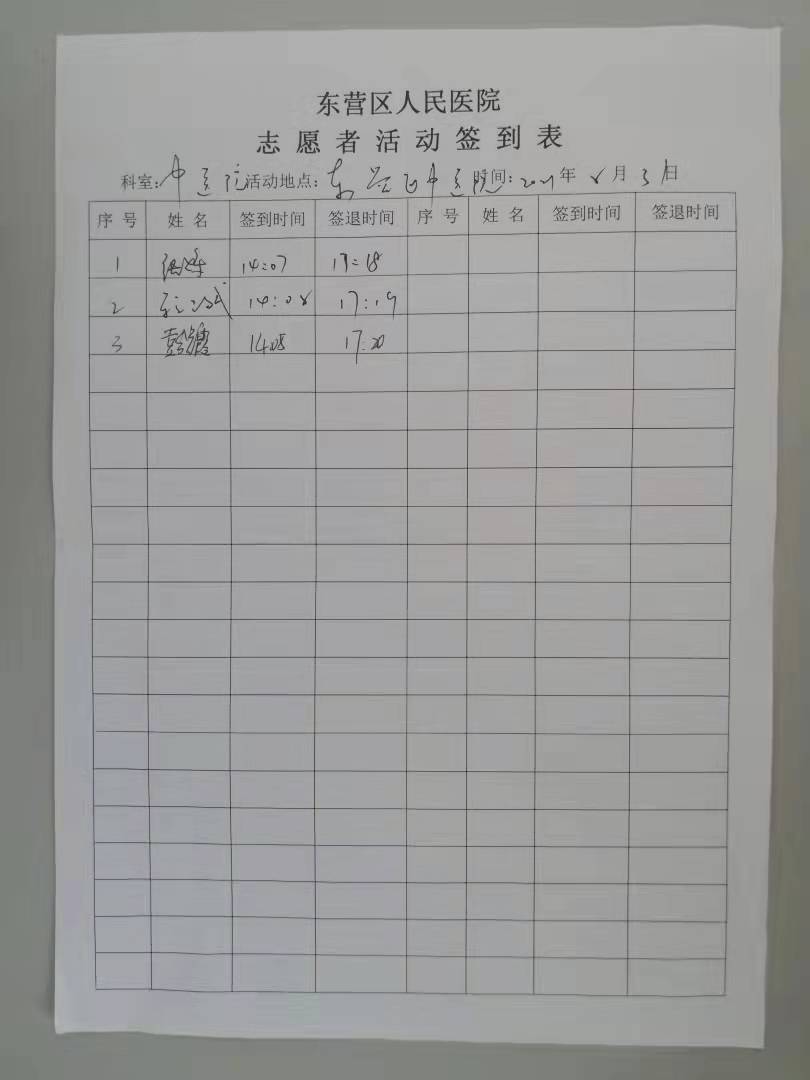 东营区人民医院
志愿者活动签到表
科室:中医院活动地点:东营区中医院时间:2021年8月3日
序号 姓名 签到时间 签退时间 序号 姓名 签到时间 签退时间
1 14:07 17:18
2 14:08 17:19
3 1408 17:20